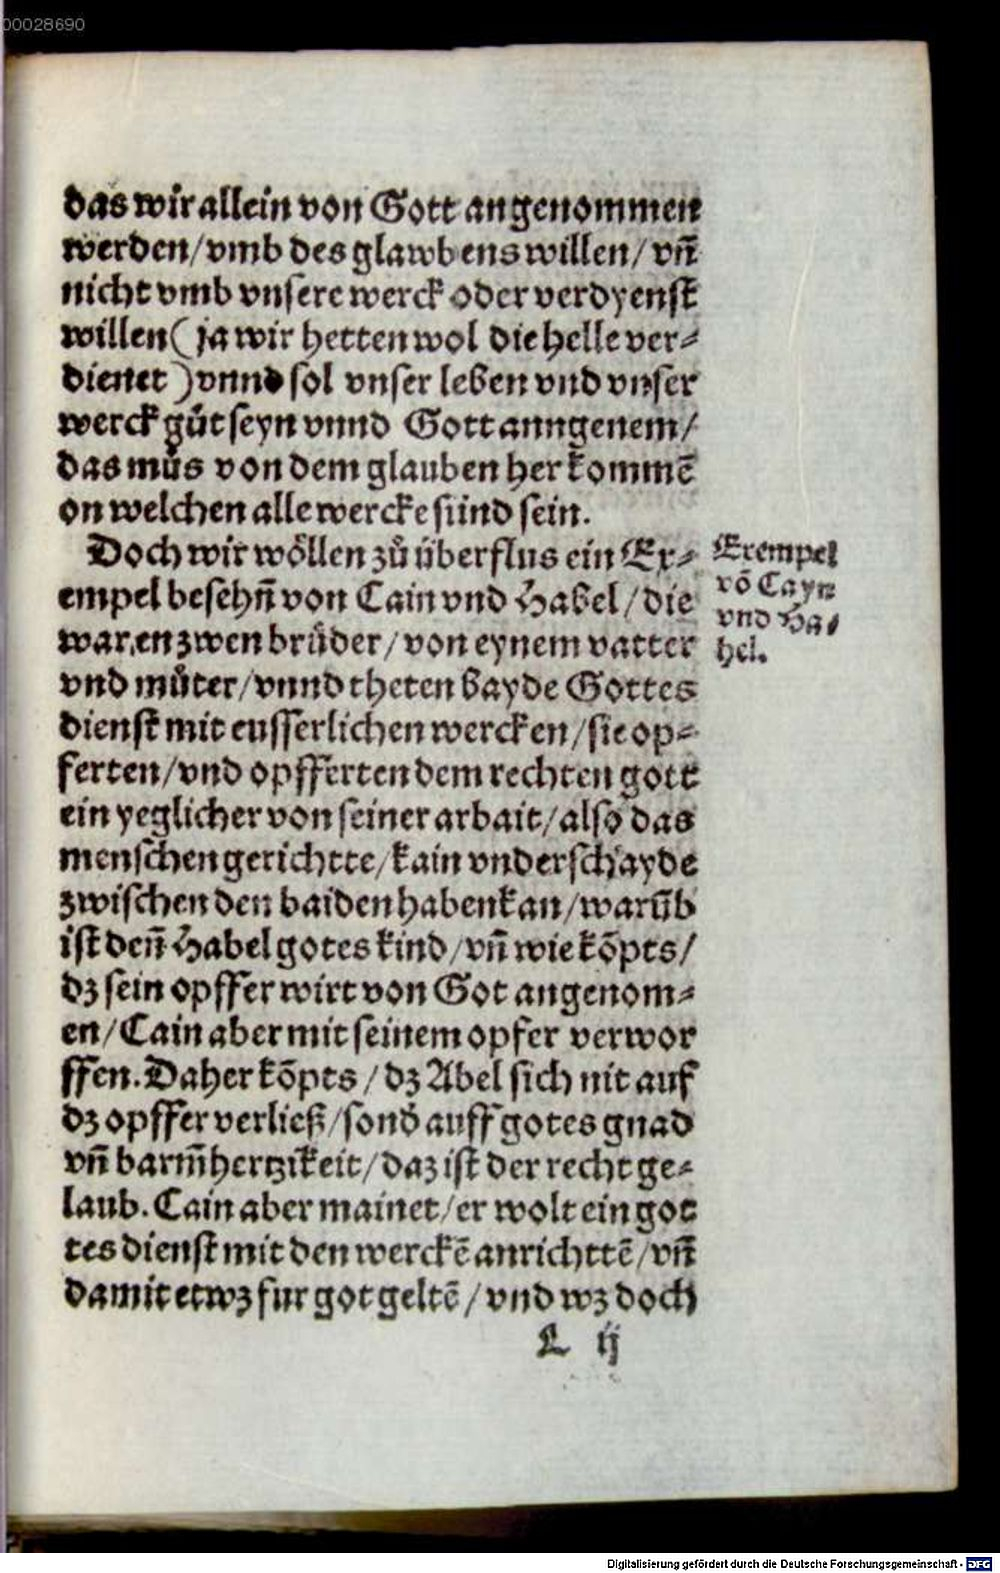 00028690
das wir allein von Gott angenommen
werden/vmb des glawbens willen/vñ
nicht vmb vnsere werck oder verdyenst
willen (ja wir hetten wol die helle ver⸗
dienet) vnnd sol vnser leben vnd vnser
werck gůt seyn vnnd Gott anngenem/
das můs von dem glauben her kommē
on welchen alle wercke sünd sein.
Doch wir wöllen zů überflus ein Ex⸗
empel besehñ von Cain vnd Habel/die
waren zwen brüder/von eynem vatter
vnd můter/vnnd theten bayde Gottes
dienst mit eusserlichen wercken/sie op⸗
ferten/vnd opfferten dem rechten gott
ein yeglicher von seiner arbait/also das
menschen gerichtte/kain vnderschayde
zwischen den baiden haben kan/warūb
ist deñ Habel gotes kind/vñ wie kōpts/
dz sein opffer wirt von Got angenom⸗
en/Cain aber mit seinem opfer verwor
ffen. Daher kōpts/dz Abel sich nit auf
dz opffer verließ/sond̕ auff gotes gnad
vñ barm̄hertzikeit/daz ist der recht ge⸗
laub. Cain aber mainet/er wolt ein got
tes dienst mit den werckē anrichttē/vñ
damit etwz fur got geltē/vnd wz doch
L ij
Exempel
vō Cayn
vnd Ha⸗
bel.
Digitalisierung gefördert durch die Deutsche Forschungsgemeinschaft - DFG